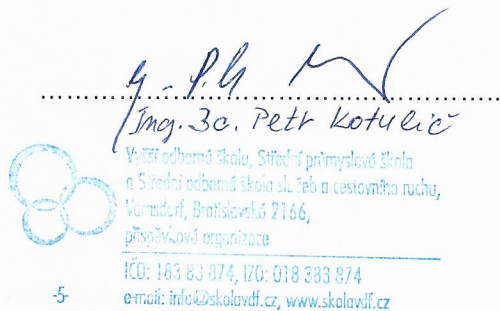 Ing. Bc. Petr Kotulič
Vyšší odborná škola, Střední průmyslová škola
a Střední odborná škola služeb a cestovního ruchu,
Varnsdorf, Bratislavská 2166,
příspěvková organizace
IČO: 183 83 874, IZO: 018 383 874
-5- e-mail: info@skolavdf.cz, www.skolavdf.cz